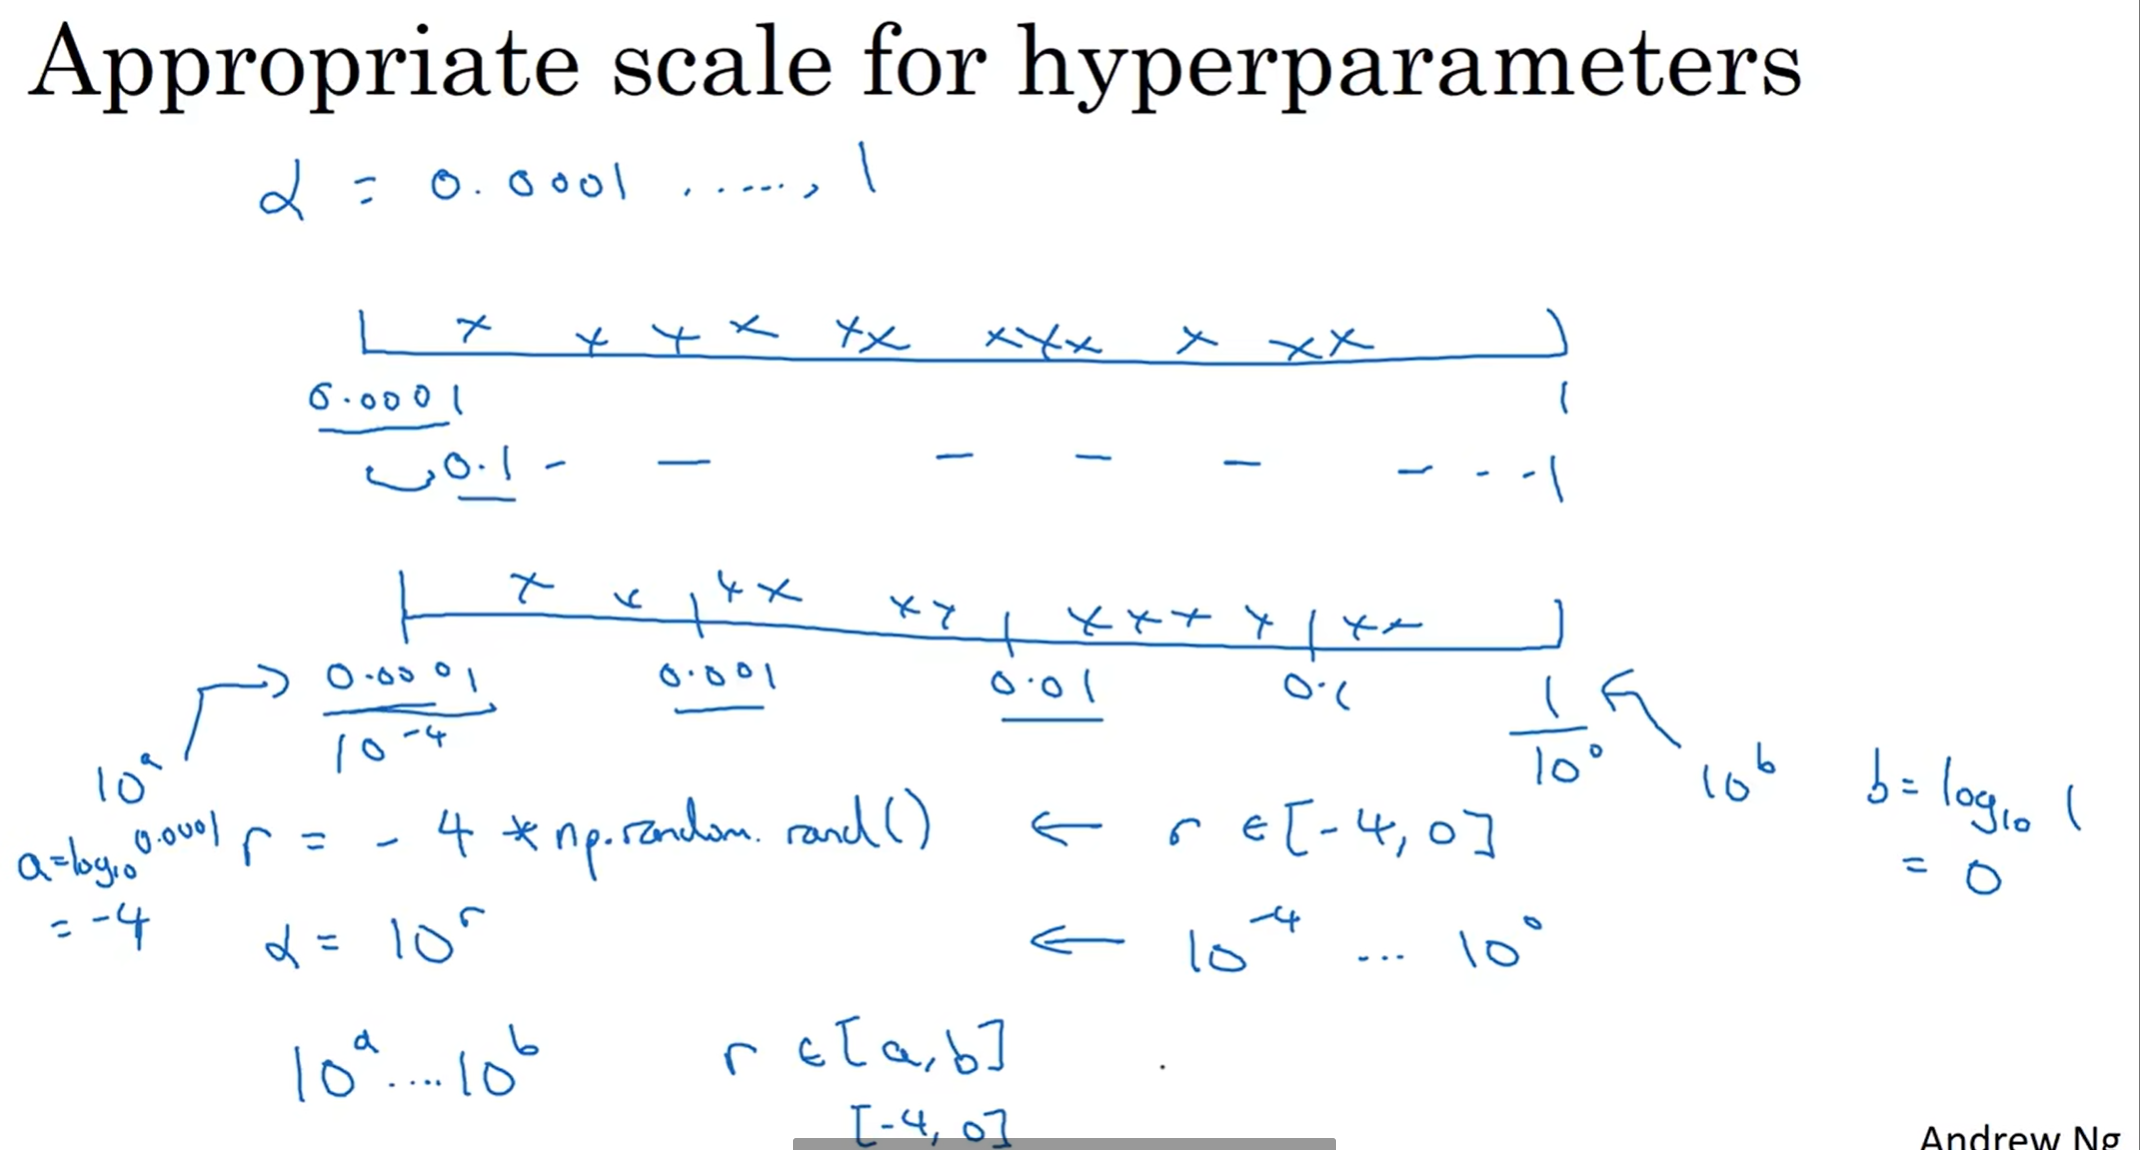 Appropriate scale for hyperparameters
α = 0.0001 ......, 1
0.0001 1
0.1 - — — — — — - - - 1
0.0001 0.001 0.01 0.1 1
10^-4 10^0
10^a 10^b b = log₁₀ 1
= 0
a = log₁₀ 0.0001
= -4
r = - 4 * np.random.rand() ← r ∈ [-4, 0]
α = 10^r ← 10^-4 ... 10^0
10^a ..... 10^b r ∈ [a, b]
[-4, 0]
Andrew Ng